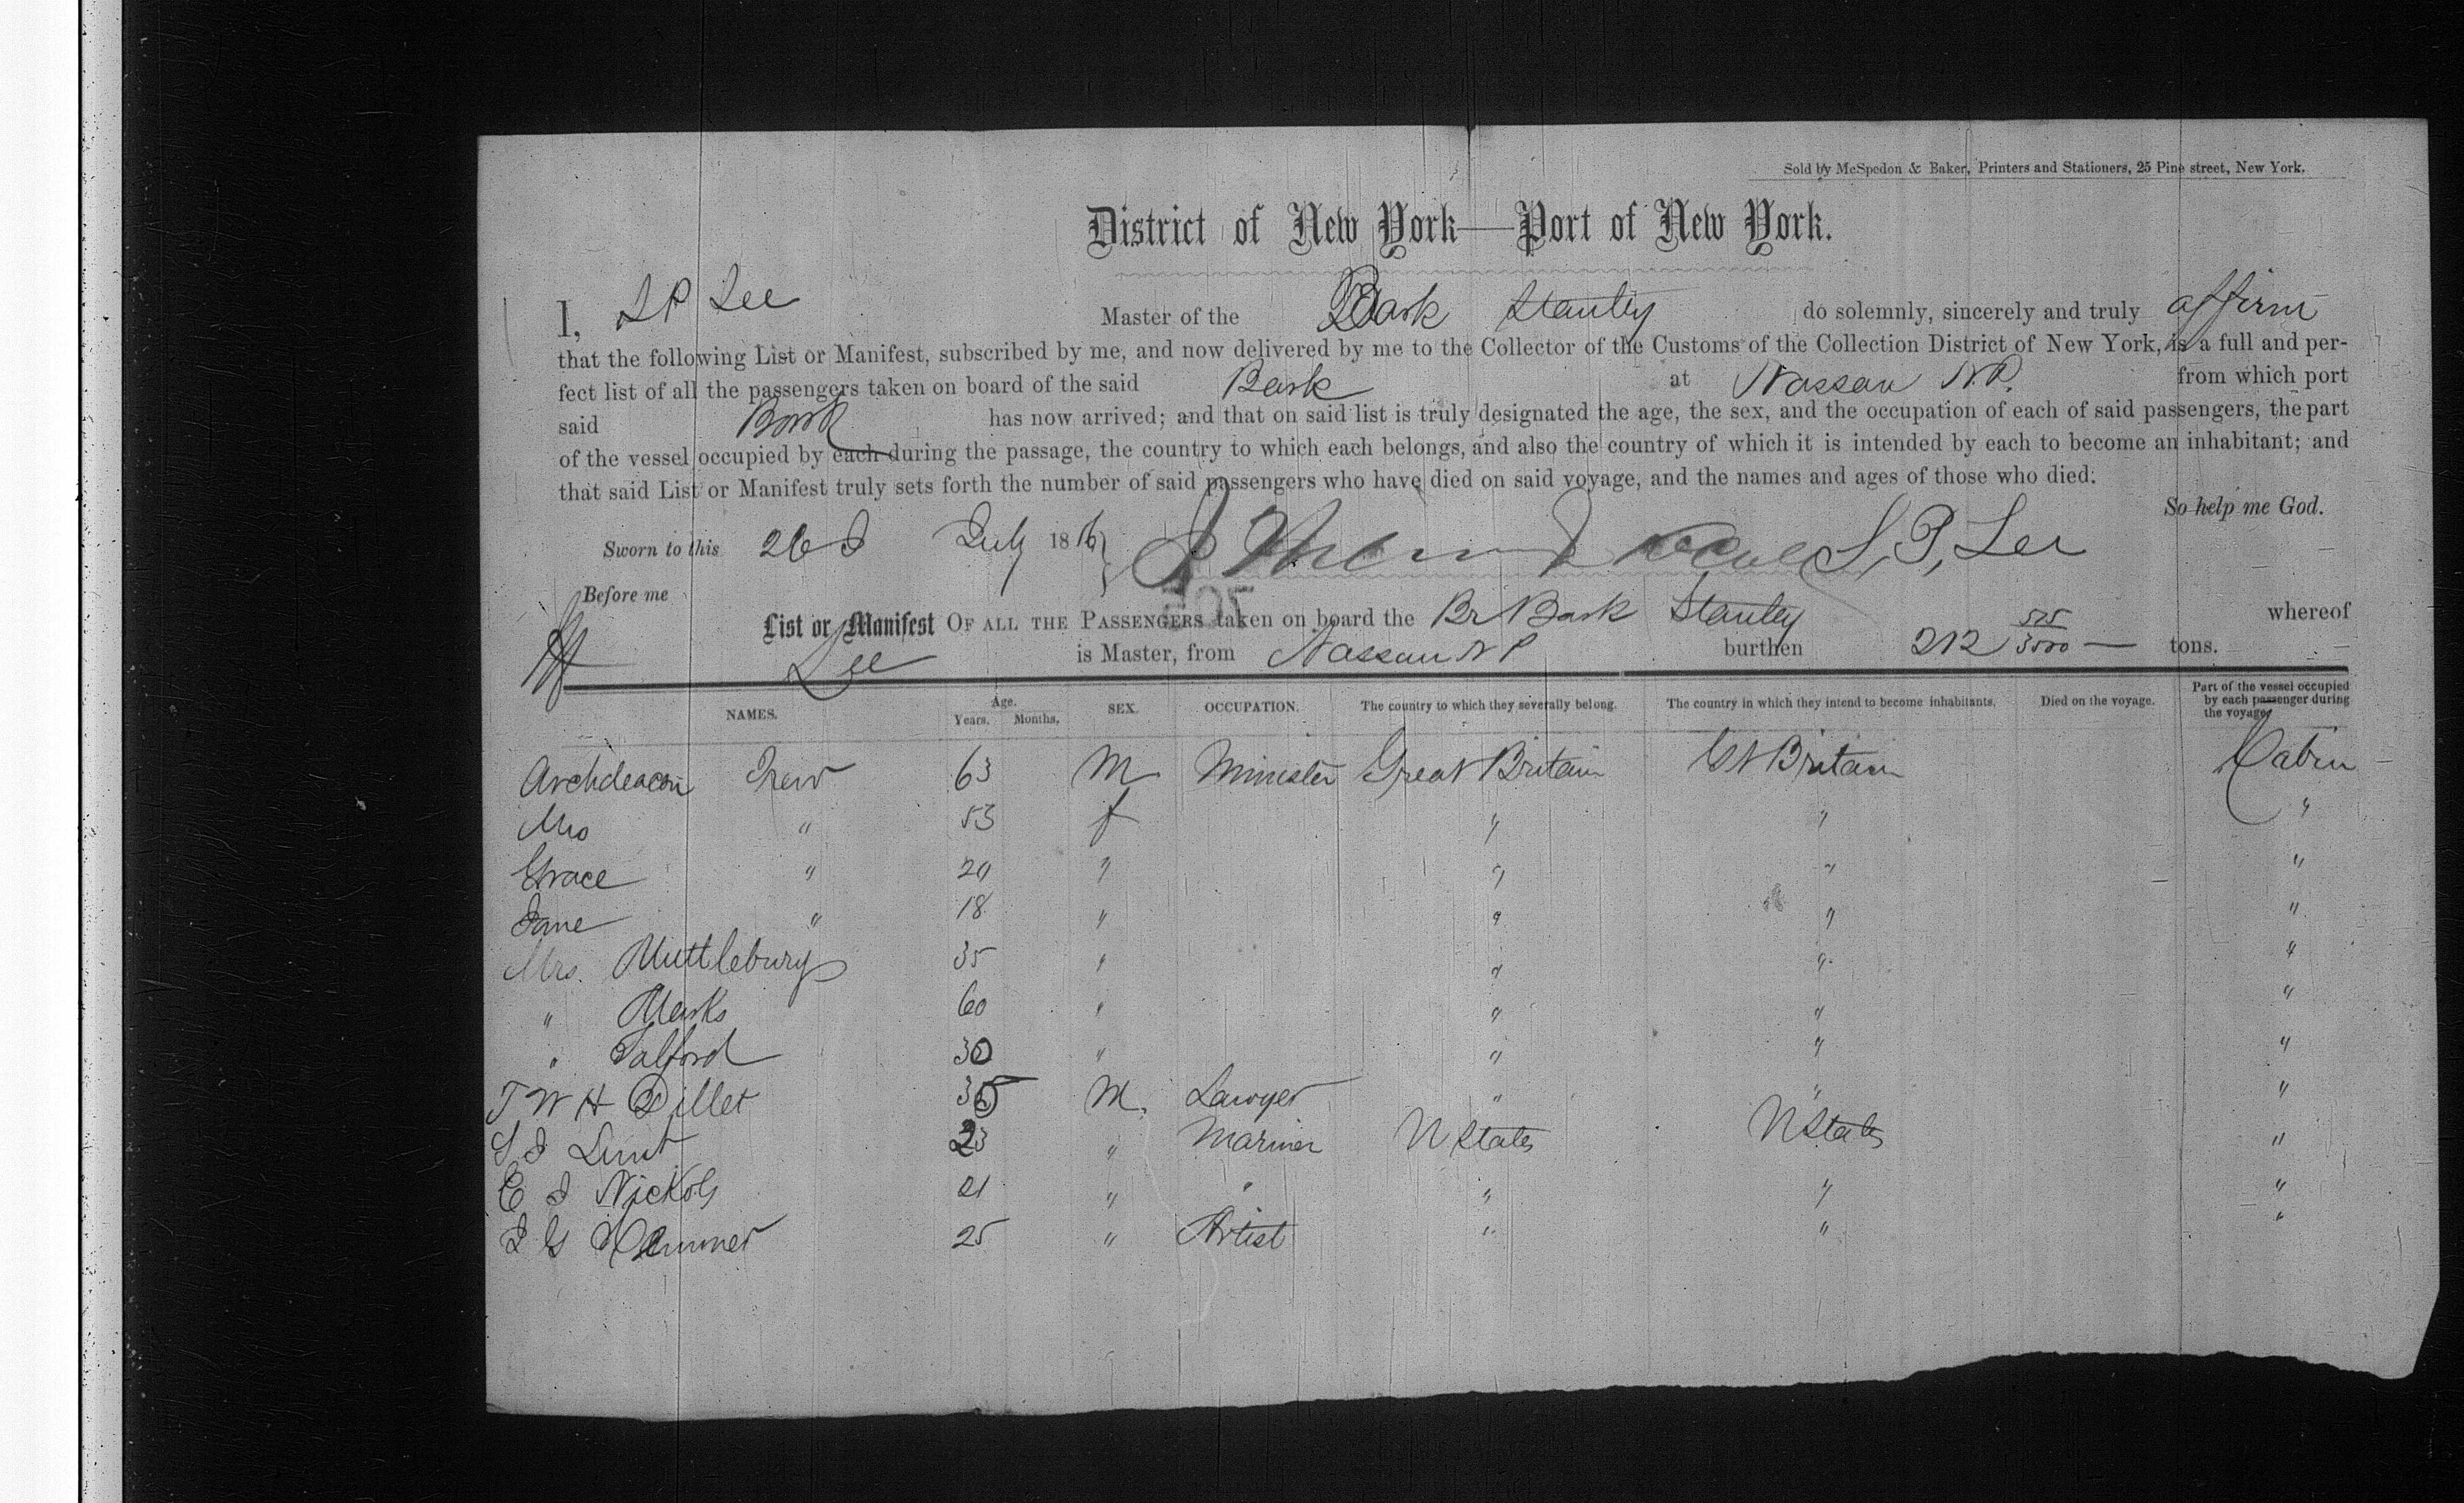 Sold by McSpedon & Baker, Printers and Stationers, 25 Pine street, New York.
District of New York—Port of New York.
I, S P Lee Master of the Bark Stanley do solemnly, sincerely and truly affirm
that the following List or Manifest, subscribed by me, and now delivered by me to the Collector of the Customs of the Collection District of New York, is a full and per-
fect list of all the passengers taken on board of the said Bark at Nassau N.P. from which port
said Bark has now arrived; and that on said list is truly designated the age, the sex, and the occupation of each of said passengers, the part
of the vessel occupied by each during the passage, the country to which each belongs, and also the country of which it is intended by each to become an inhabitant; and
that said List or Manifest truly sets forth the number of said passengers who have died on said voyage, and the names and ages of those who died.
So help me God.
Sworn to this 26 July 186 S, P, Lee
Before me
List or Manifest OF ALL THE PASSENGERS taken on board the Br Bark Stanley whereof
Lee is Master, from Nassau N P burthen 212 tons.
NAMES. Age. Years. Months. SEX. OCCUPATION. The country to which they severally belong. The country in which they intend to become inhabitants. Died on the voyage. Part of the vessel occupied by each passenger during the voyage.
Archdeacon Trew 63 M Minister Great Britain Gt Britain Cabin
Mrs " 53 f " " "
Grace " 20 " " " "
Jane " 18 " " " "
Mrs. Muttlebury 35 " " " "
" Marks 60 " " " "
" Salford 30 " " " "
T W H Dillet 35 M. Lawyer " " "
S J Lunt 23 " Mariner U States U States "
E J Nickols 21 " " " " "
J G 25 " Artist " " "